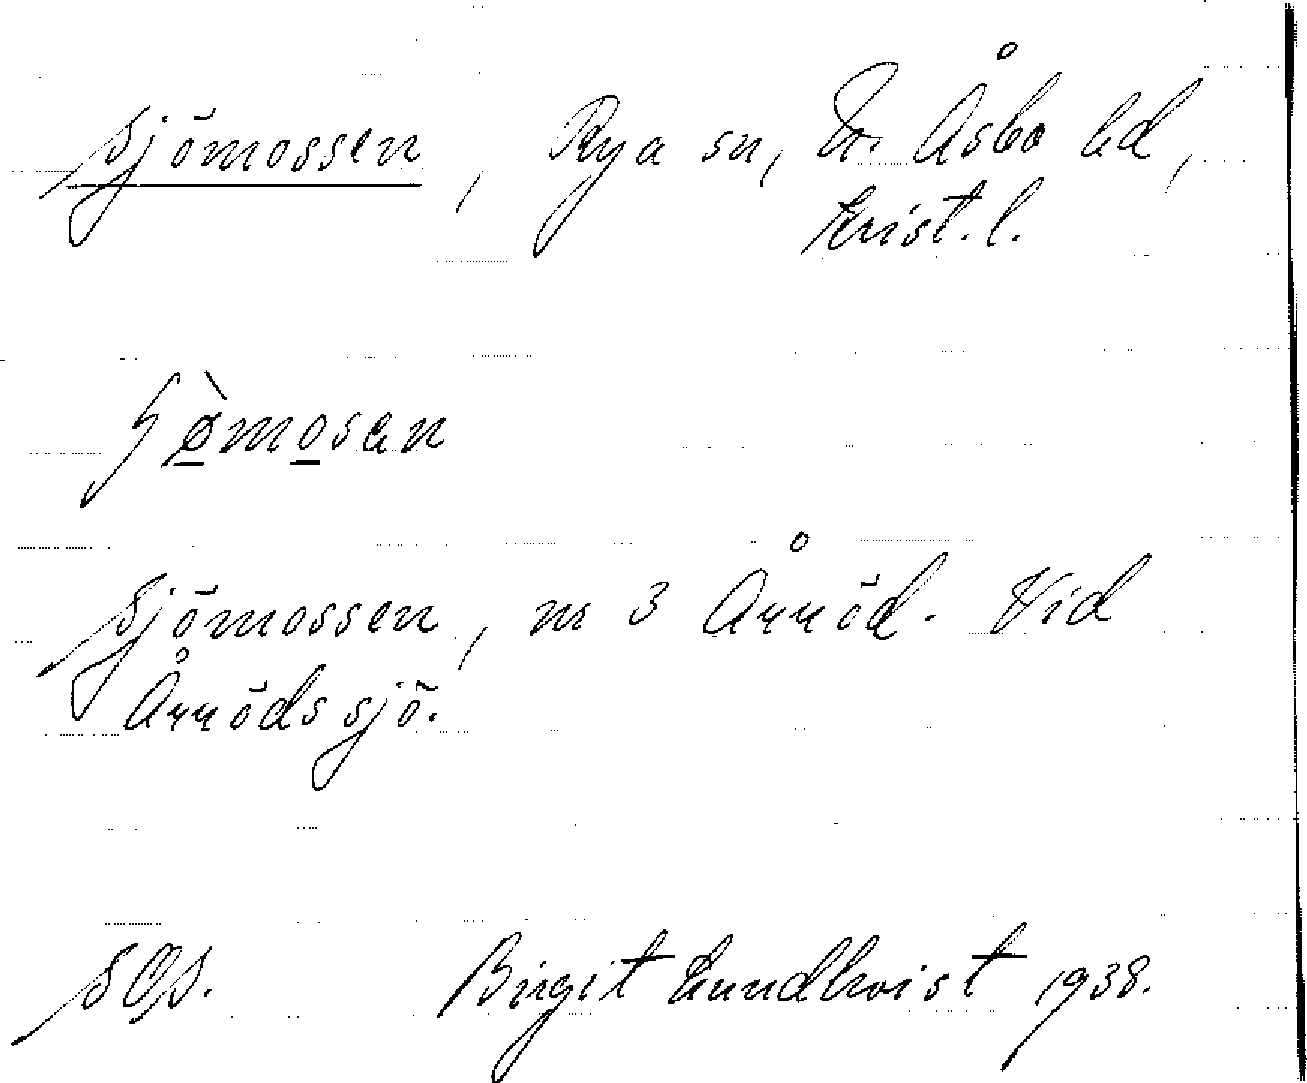 Sjömossen, Rya sn, N. Åsbo hd,
Krist. l.
ʃø̀mosən
Sjömossen, nr 3 Årröd. Vid
Årröds sjö.
Birgit Lundkvist 1938.